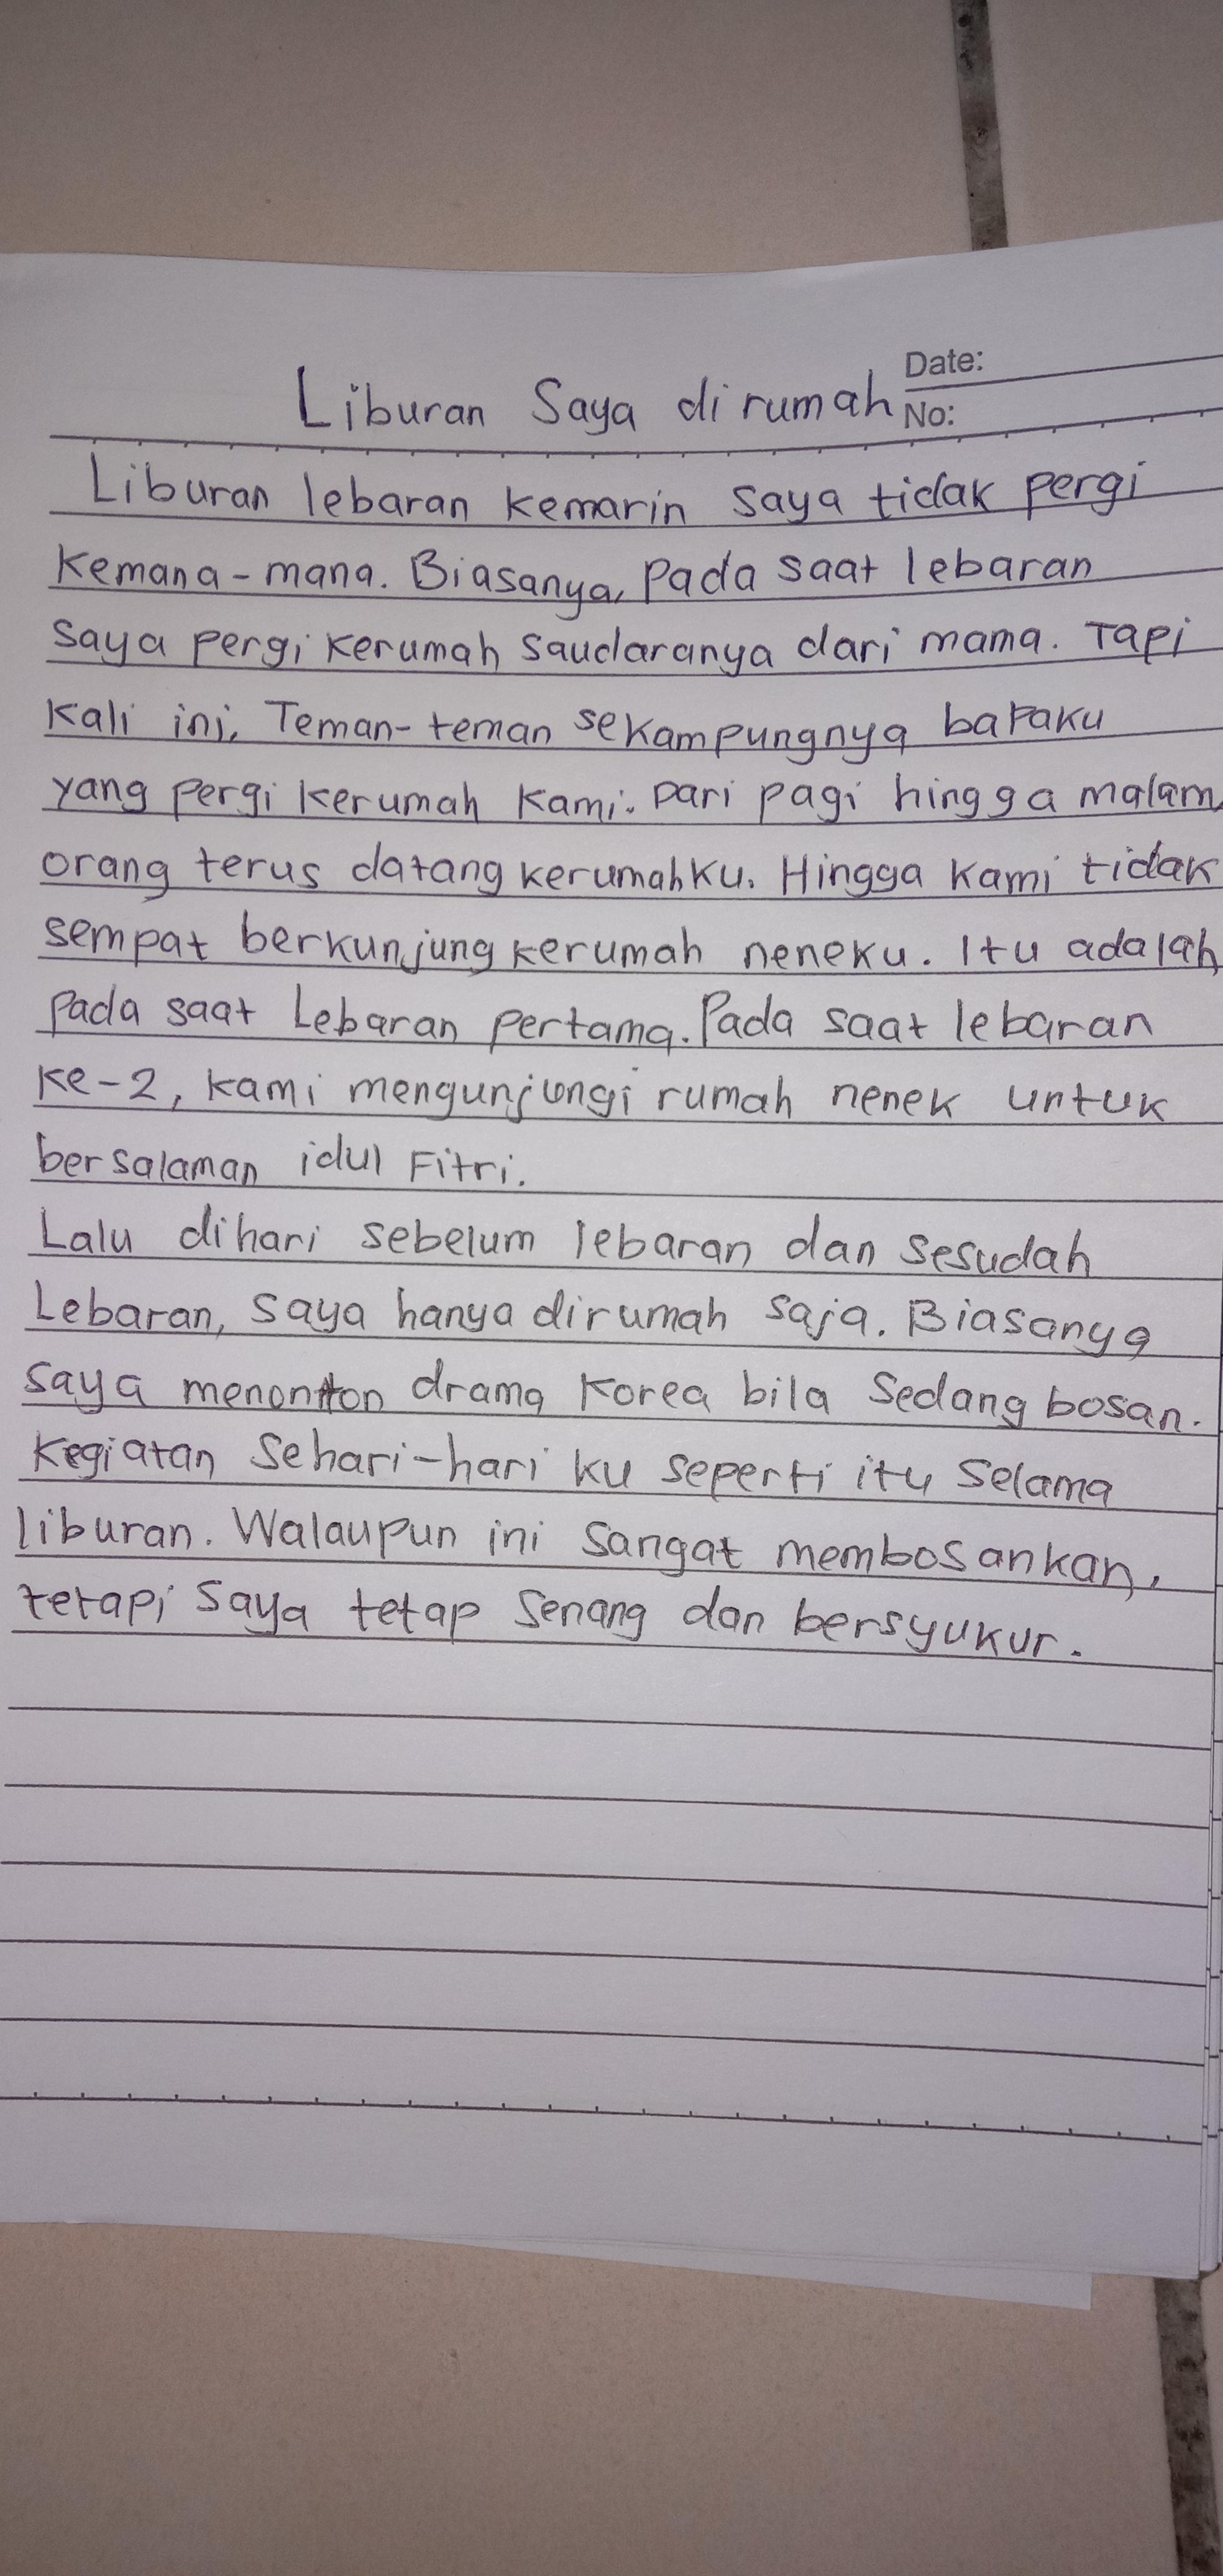 Date:
Liburan Saya di rumah No:
Liburan lebaran kemarin saya tidak pergi
kemana-mana. Biasanya, Pada saat lebaran
saya pergi kerumah saudaranya dari mama. Tapi
kali ini, Teman-teman sekampungnya bapaku
yang pergi kerumah kami. Dari pagi hingga malam,
orang terus datang kerumahku. Hingga kami tidak
sempat berkunjung kerumah neneku. Itu adalah
pada saat Lebaran pertama. Pada saat lebaran
ke-2, kami mengunjungi rumah nenek untuk
bersalaman idul Fitri.
Lalu dihari sebelum lebaran dan sesudah
Lebaran, saya hanya dirumah saja. Biasanya
saya menonton drama Korea bila Sedang bosan.
Kegiatan Sehari-hari ku seperti itu Selama
liburan. Walaupun ini sangat membosankan,
tetapi saya tetap Senang dan bersyukur.